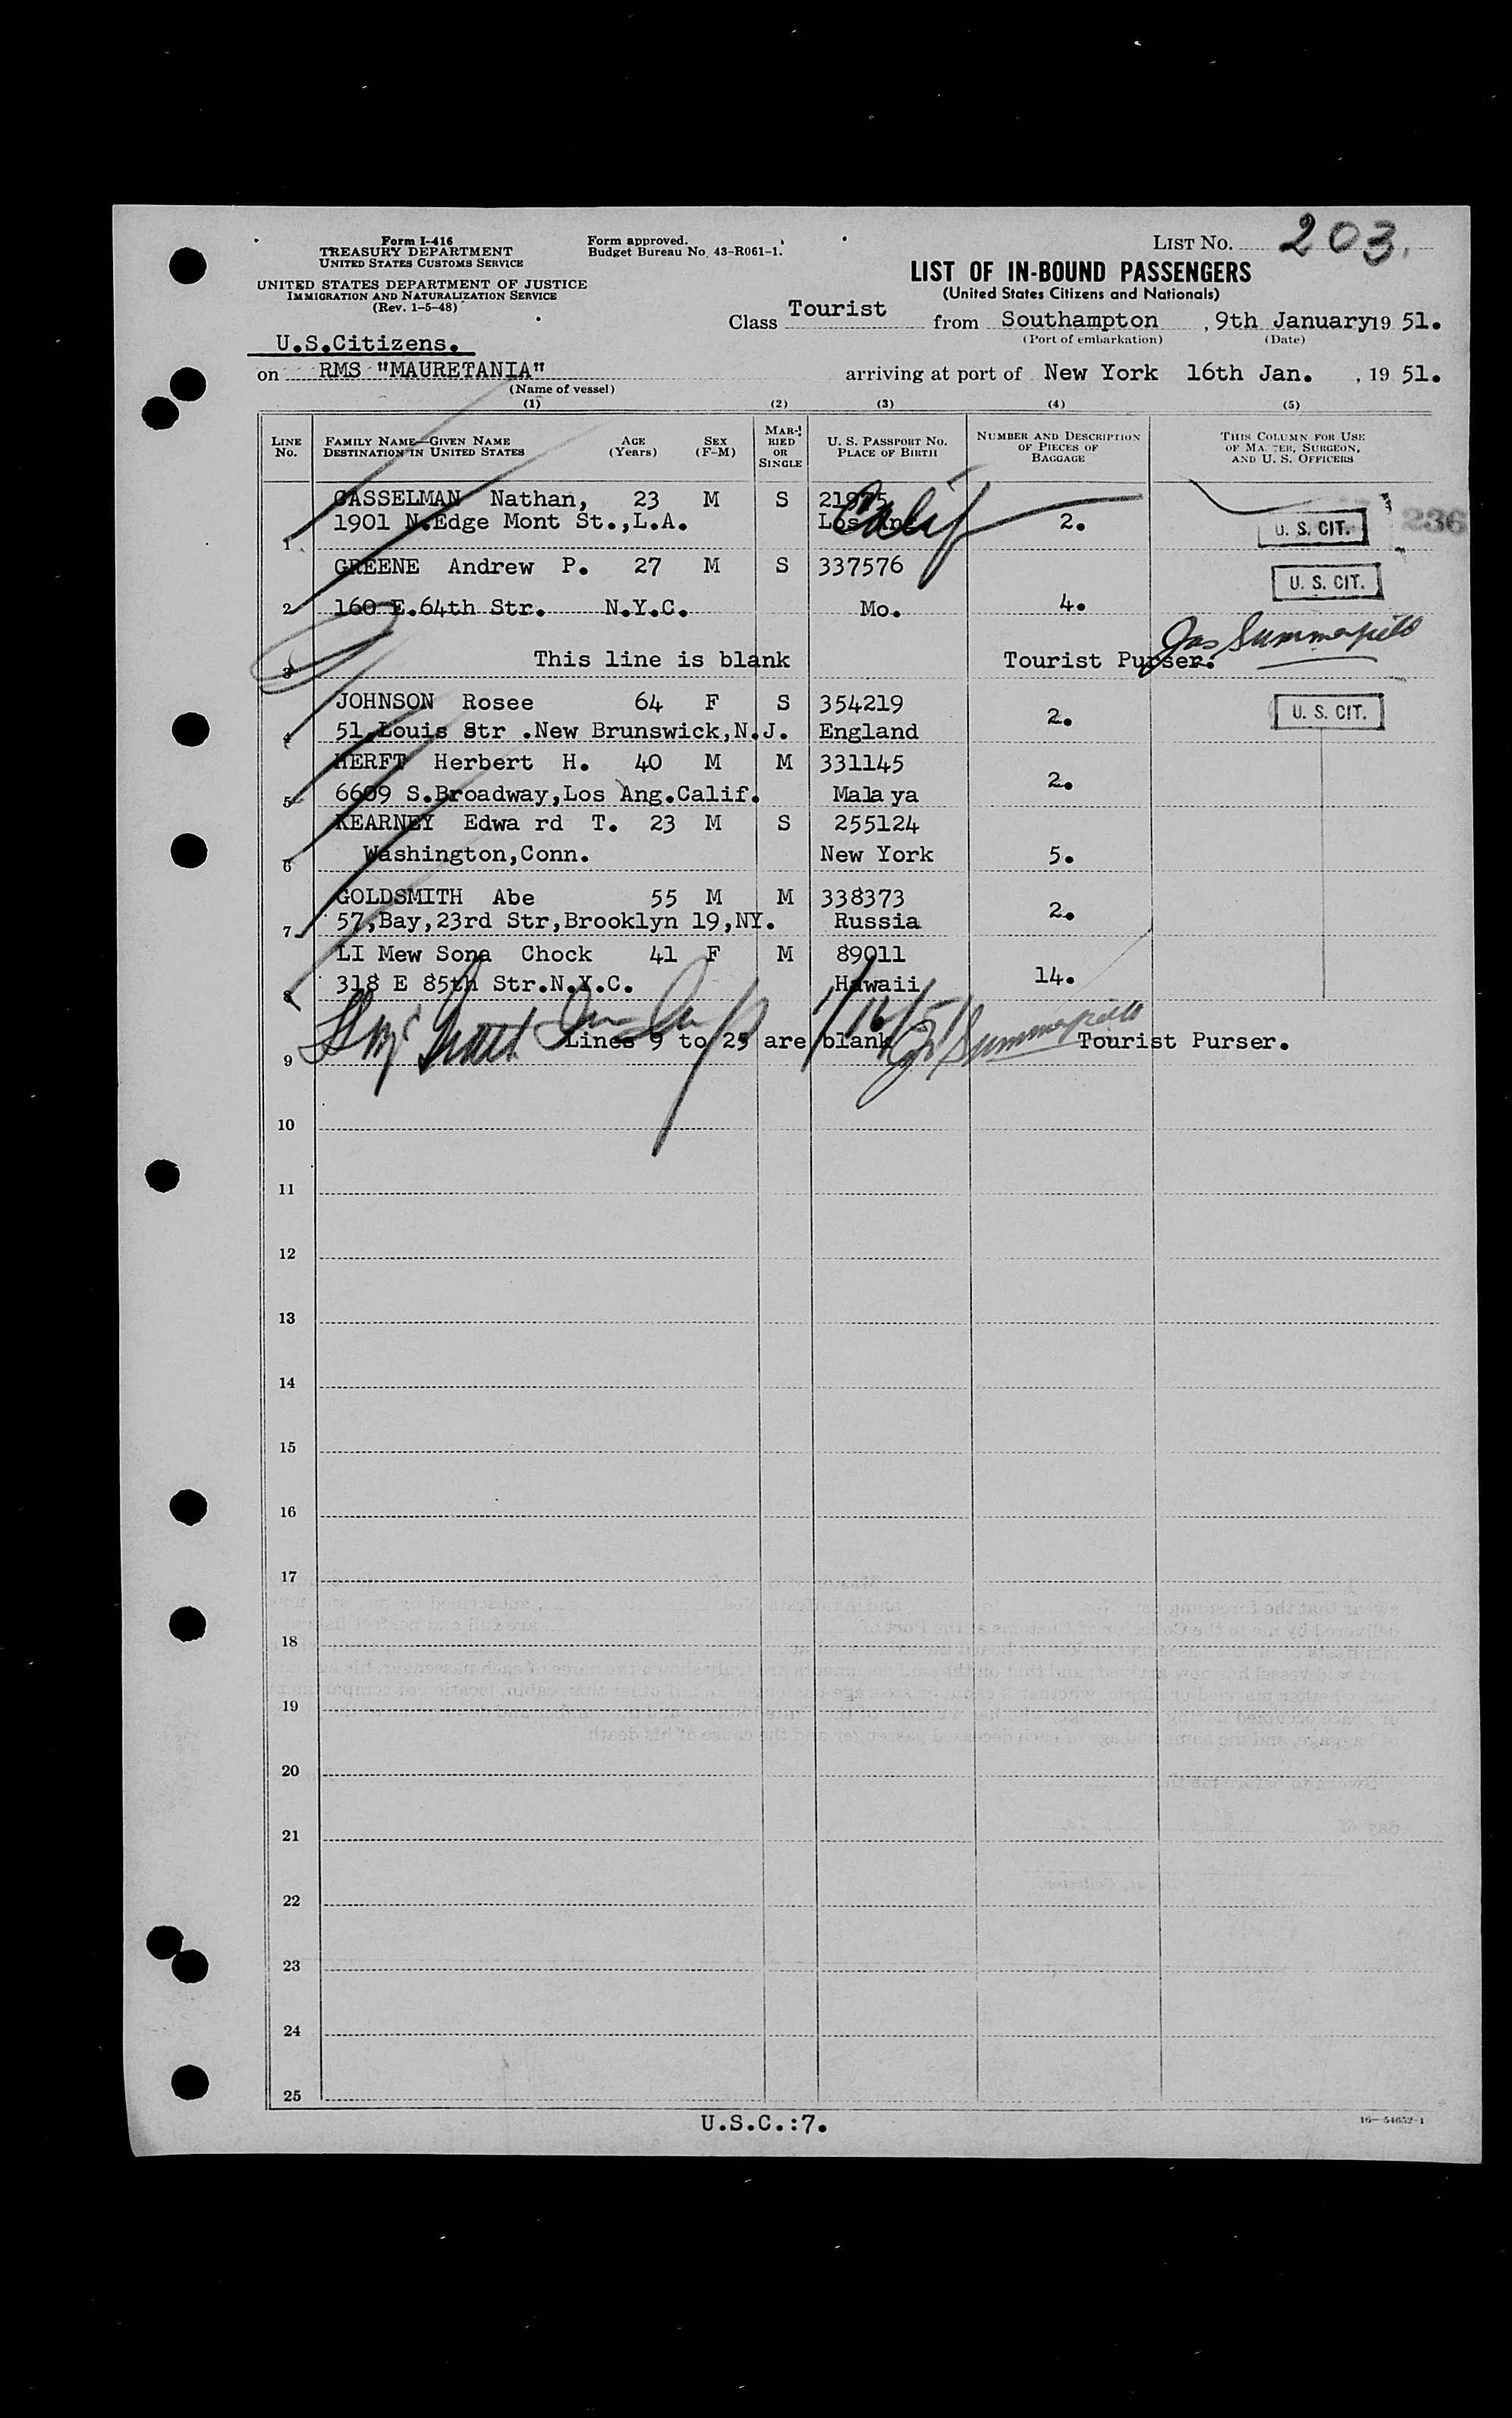 Form I-416
TREASURY DEPARTMENT
UNITED STATES CUSTOMS SERVICE
UNITED STATES DEPARTMENT OF JUSTICE
IMMIGRATION AND NATURALIZATION SERVICE
(Rev. 1-5-48)
Form approved.
Budget Bureau No. 43-R061-1.
LIST No. 203.
LIST OF IN-BOUND PASSENGERS
(United States Citizens and Nationals)
Class Tourist from Southampton , 9th January 19 51.
(Port of embarkation) (Date)
U.S.Citizens.
on RMS "MAURETANIA" arriving at port of New York 16th Jan. , 19 51.
(Name of vessel)
(1) (2) (3) (4) (5)
LINE No. FAMILY NAME—GIVEN NAME DESTINATION IN UNITED STATES AGE (Years) SEX (F-M) MARRIED OR SINGLE U. S. PASSPORT No. PLACE OF BIRTH NUMBER AND DESCRIPTION OF PIECES OF BAGGAGE THIS COLUMN FOR USE OF MASTER, SURGEON, AND U. S. OFFICERS
CASSELMAN Nathan, 23 M S 21975
1 1901 N.Edge Mont St.,L.A. Los Ang Calif 2. U. S. CIT. 236
GREENE Andrew P. 27 M S 337576 U. S. CIT.
2 160 E.64th Str. N.Y.C. Mo. 4.
3 This line is blank Tourist Purser. Jas Summerfield
JOHNSON Rosee 64 F S 354219 U. S. CIT.
4 51,Louis Str .New Brunswick,N.J. England 2.
HERFT Herbert H. 40 M M 331145
5 6609 S.Broadway,Los Ang.Calif. Mala ya 2.
KEARNEY Edwa rd T. 23 M S 255124
6 Washington,Conn. New York 5.
GOLDSMITH Abe 55 M M 338373
7 57,Bay,23rd Str,Brooklyn 19,NY. Russia 2.
LI Mew Sona Chock 41 F M 89011
8 318 E 85th Str.N.Y.C. Hawaii 14.
1/16/51
9 Lines 9 to 25 are blank Summerfield Tourist Purser.
10
11
12
13
14
15
16
17
18
19
20
21
22
23
24
25
U.S.C.:7.
16—54652-1